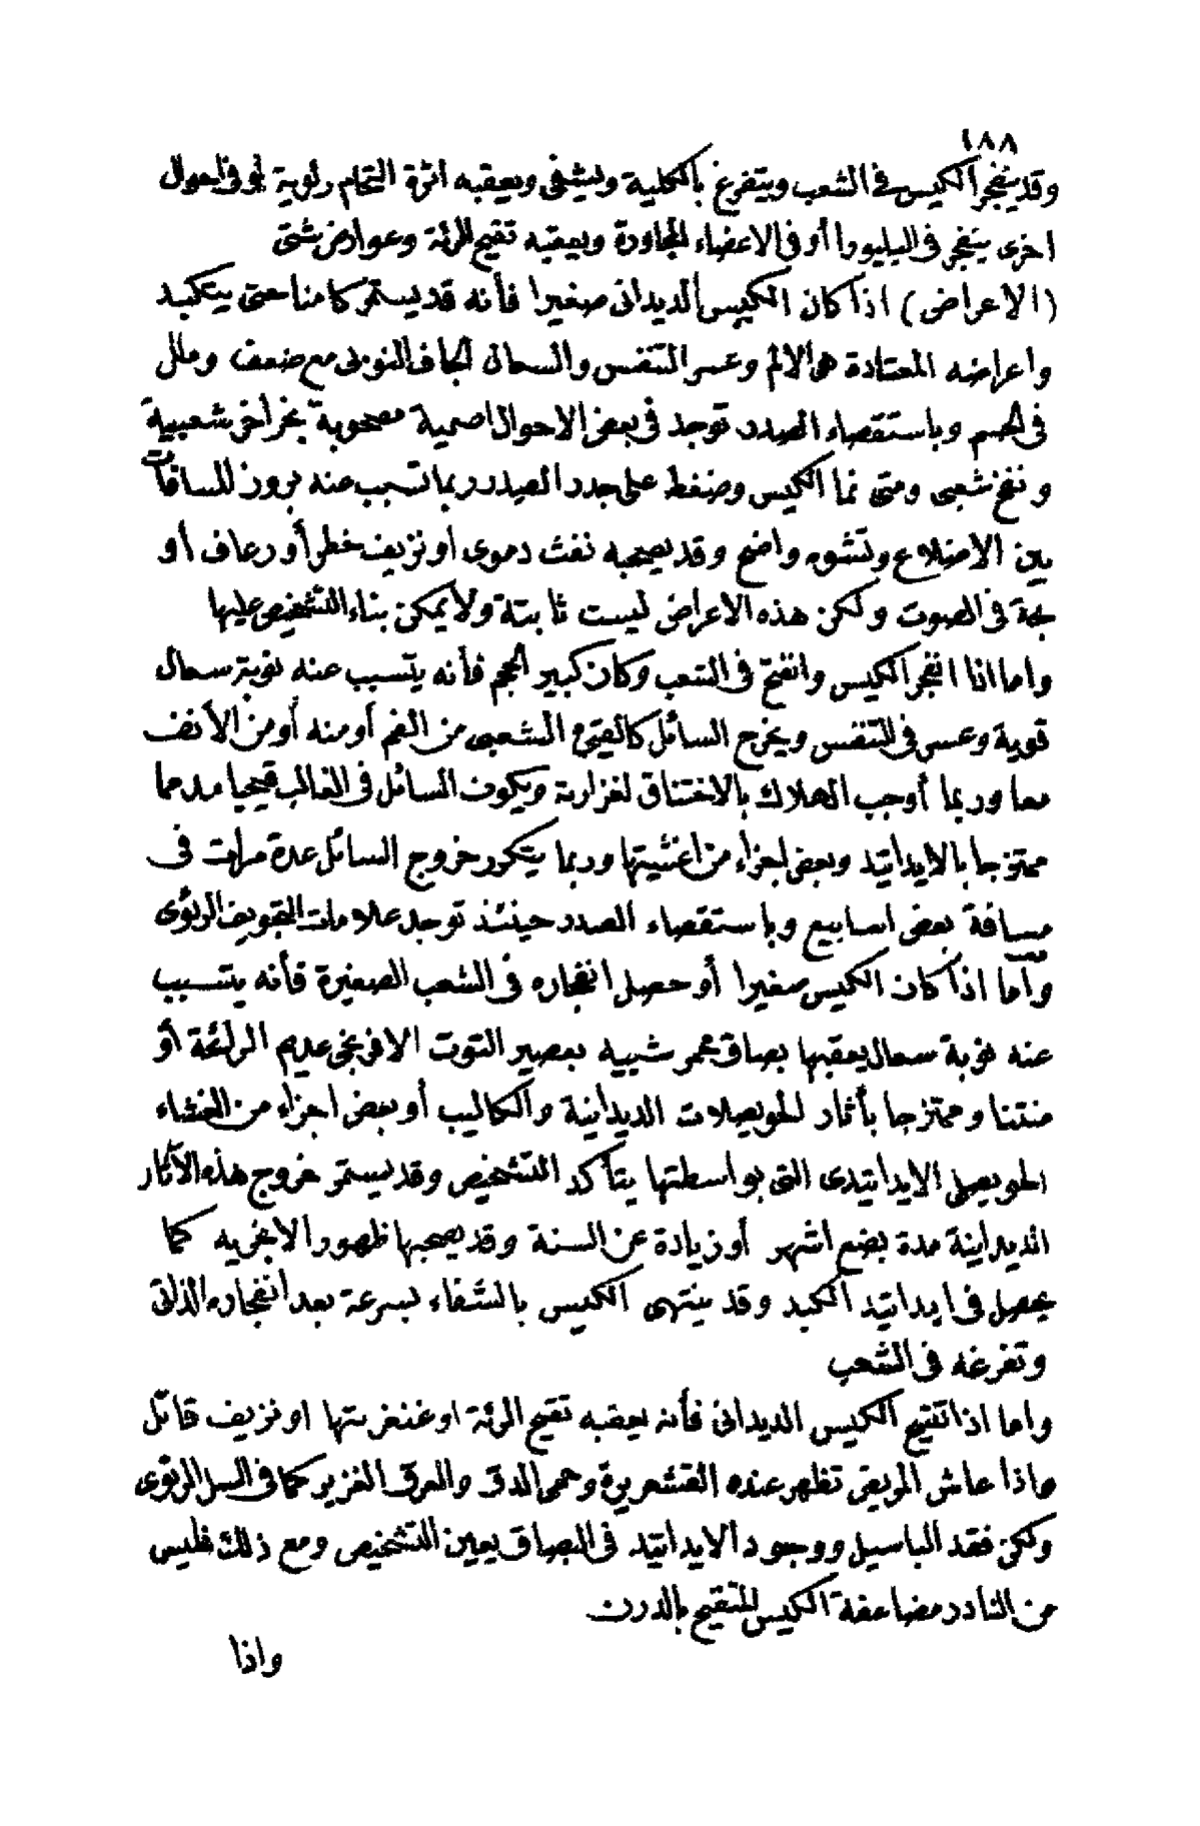 ١٨٨
وقد ينفجر الكيس في الشعب ويتفرغ بالكلية ويشفى ويعقبه اثرة التحام رئوية او فى احوال
اخرى ينفجر فى البليورا أو فى الاعضاء المجاورة ويعقبه تقيح الرئة وعوارض شتى
(الاعراض) اذا كان الكيس الديدانى صغيرا فأنه قد يستمر كامنا حتى يتكبد
واعراضه المعتادة هى الالم وعسر التنفس والسعال الجاف النوبى مع ضعف وملل
فى الجسم وباستقصاء الصدر توجد فى بعض الاحوال اصمية مصحوبة بخراخر شعبية
ونفخ شعبى ومتى نما الكيس وضغط على جدر الصدر ربما تسبب عنه بروز للسافات
بين الاضلاع وتشوه واضح وقد يصحبه نفث دموى او نزيف خطر أو رعاف أو
بحة فى الصوت ولكن هذه الاعراض ليست ثابتة ولا يمكن بناء التشخيص عليها
واما اذا انفجر الكيس وانفتح فى الشعب وكان كبير الحجم فأنه يتسبب عنه نوبة سعال
قوية وعسر فى التنفس ويخرج السائل كالقيئ الشعبى من الفم أو منه أو من الأنف
معا وربما أوجب الهلاك بالاختناق لغزارته ويكون السائل فى الغالب قيحيا مدمما
ممتزجا بالايداتيد وبعض اجزاء من اغشيتها وربما يتكرر خروج السائل عدة مرات فى
مسافة بعض اسابيع وباستقصاء الصدر حينئذ توجد علامات التجويف الرئوى
وأما اذا كان الكيس صغيرا أو حصل انفجاره فى الشعب الصغيرة فأنه يتسبب
عنه نوبة سعال يعقبها بصاق محمر شبيه بعصير التوت الافرنجى عديم الرائحة أو
منتنا وممتزجا بأثار الحويصلات الديدانية والكاليب أو بعض اجزاء من الغشاء
الحويصلى الايداتيدى التى بواسطتها يتأكد التشخيص وقد يستمر خروج هذه الآثار
الديدانية مدة بضع اشهر أو زيادة عن السنة وقد يصحبها ظهور الانجريه كما
يحصل فى ايداتيد الكبد وقد ينتهى الكيس بالشفاء بسرعة بعد انفجاره الذاتى
وتفرغه فى الشعب
واما اذا تقيح الكيس الديدانى فأنه يعقبه تقيح الرئة او غنغرينتها او نزيف قاتل
واذا عاش المريض تظهر عنده القشعريرة وحمى الدق والعرق الغزير كما فى السل الرئوى
ولكن فقد الباسيل ووجود الايداتيد فى البصاق يعين التشخيص ومع ذلك فليس
من النادر مضاعفة الكيس المتقيح بالدرن
واذا